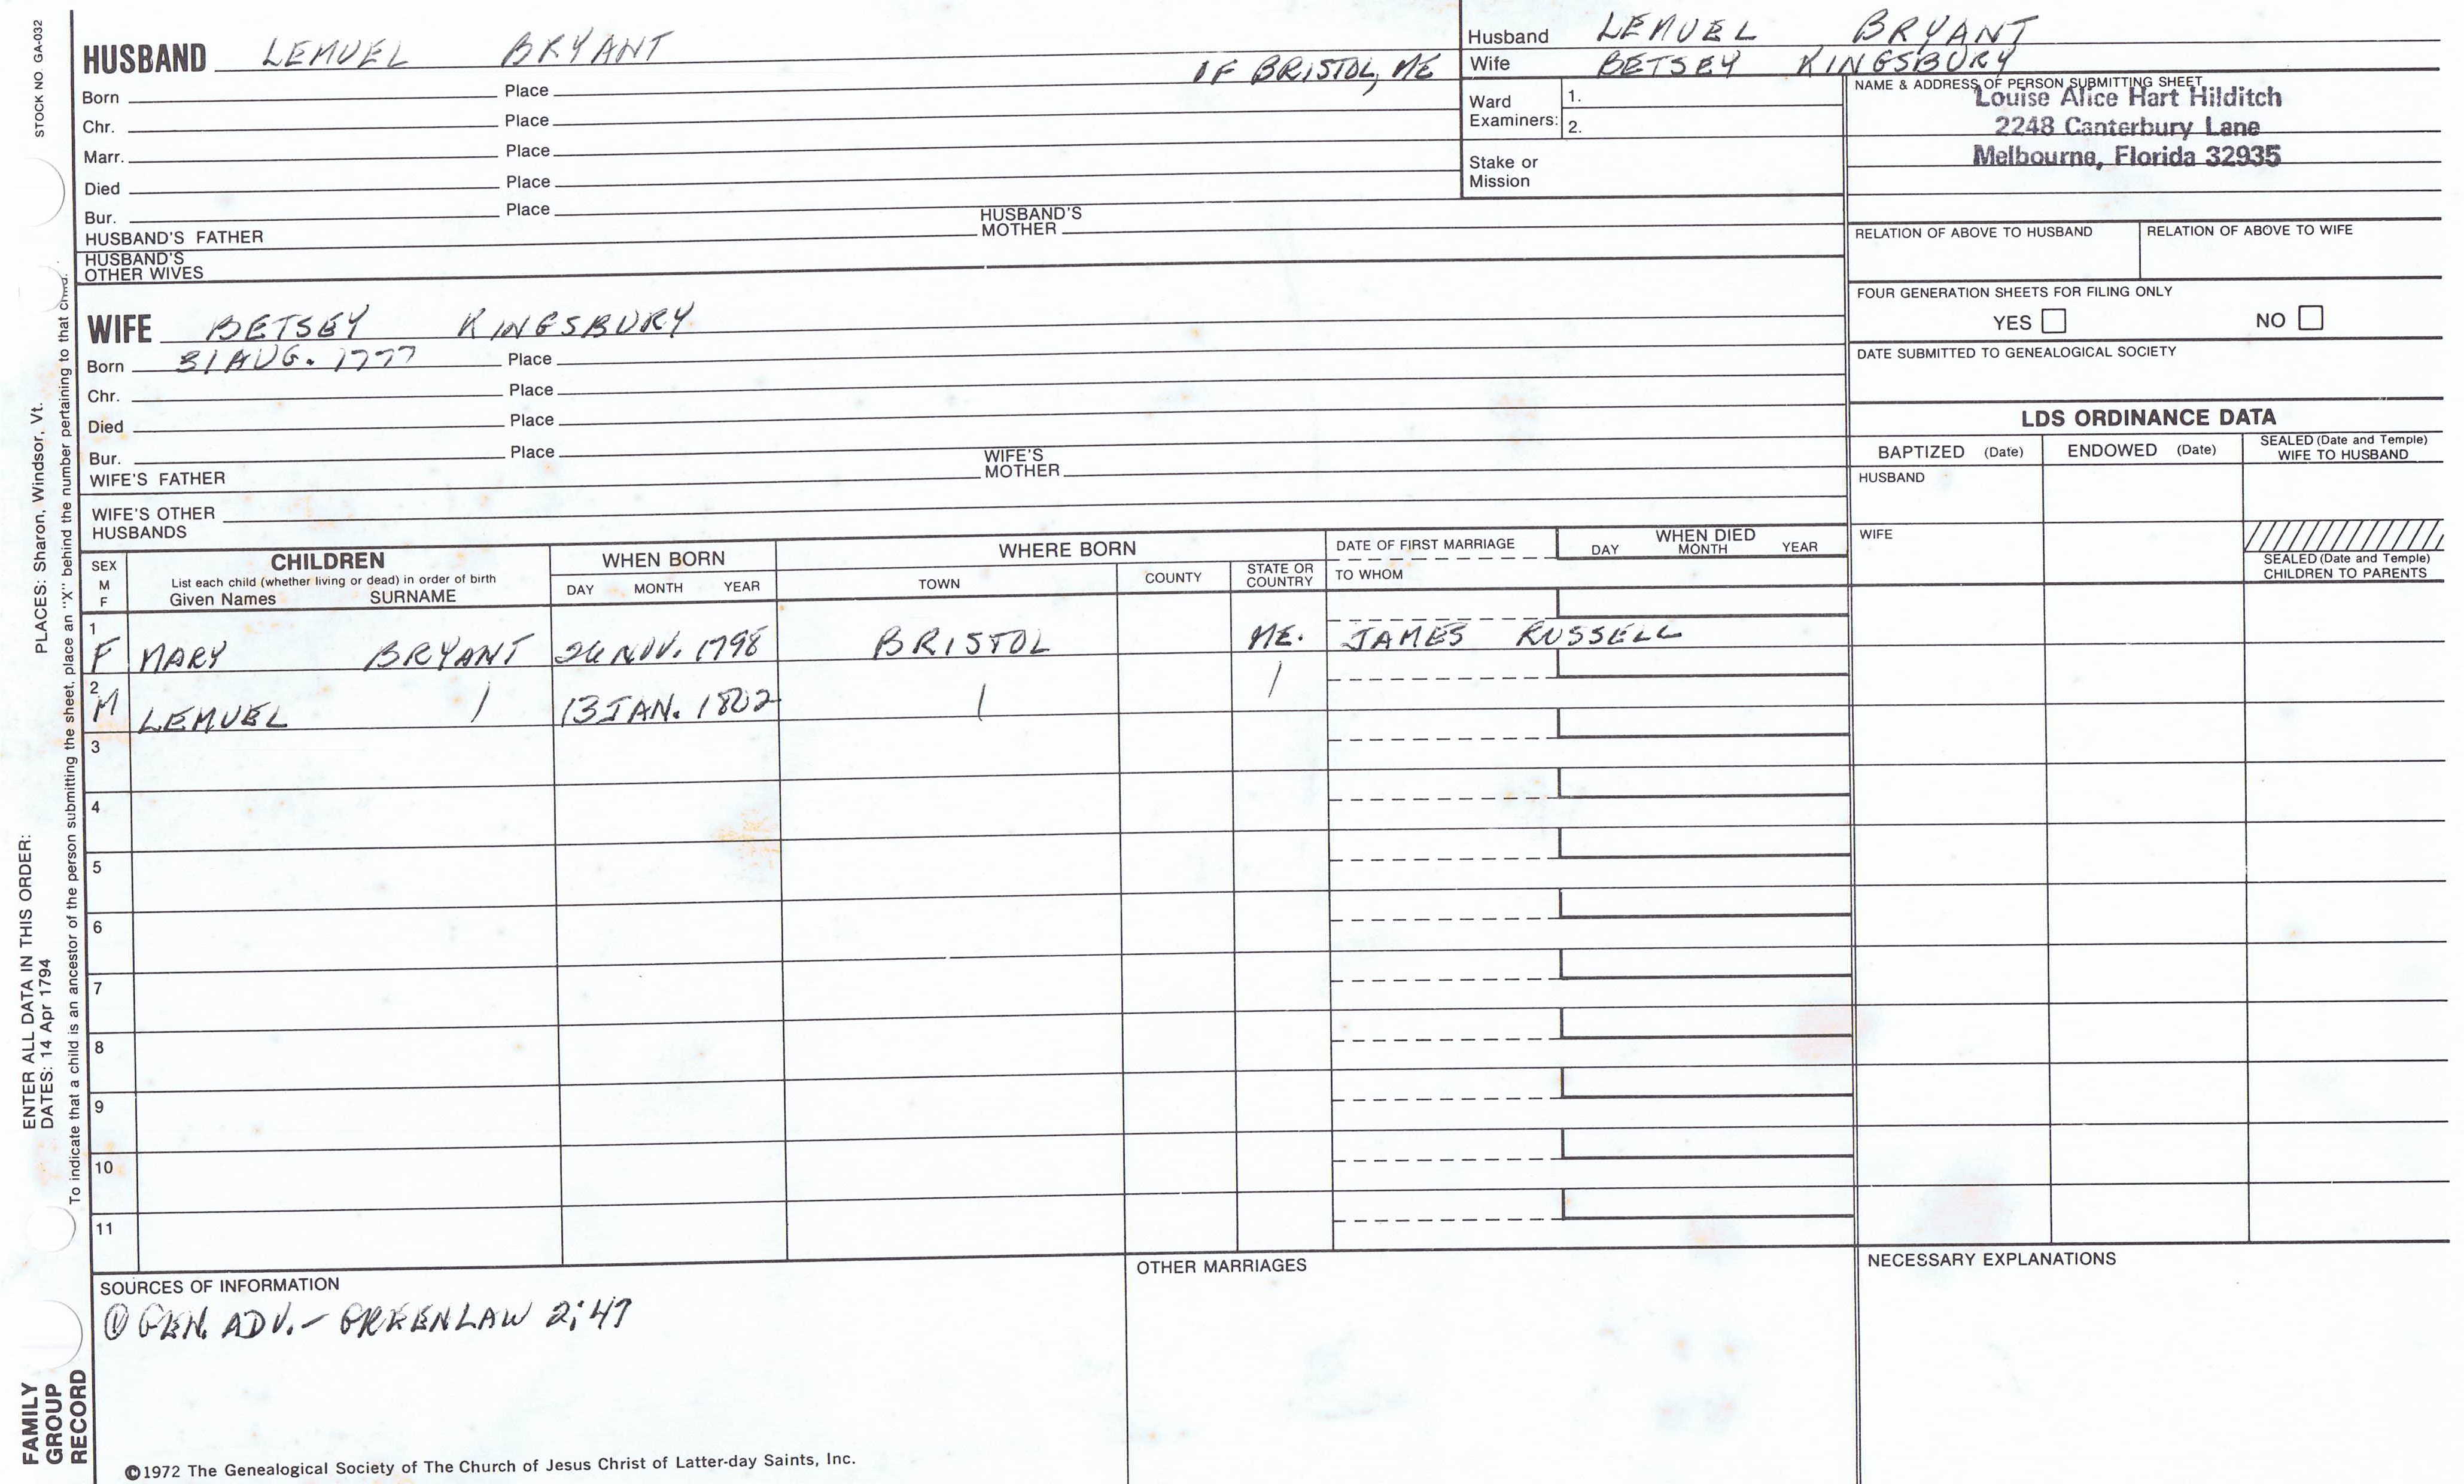 STOCK NO GA-032
HUSBAND LEMUEL BRYANT
OF BRISTOL, ME
Born Place
Chr. Place
Marr. Place
Died Place
Bur. Place
HUSBAND'S FATHER HUSBAND'S MOTHER
HUSBAND'S OTHER WIVES
Husband LEMUEL BRYANT
Wife BETSEY KINGSBURY
Ward Examiners: 1.
2.
Stake or Mission
NAME & ADDRESS OF PERSON SUBMITTING SHEET
Louise Alice Hart Hilditch
2248 Canterbury Lane
Melbourne, Florida 32935
RELATION OF ABOVE TO HUSBAND RELATION OF ABOVE TO WIFE
FOUR GENERATION SHEETS FOR FILING ONLY
YES NO
DATE SUBMITTED TO GENEALOGICAL SOCIETY
WIFE BETSEY KINGSBURY
Born 31 AUG. 1777 Place
Chr. Place
Died Place
Bur. Place
WIFE'S FATHER WIFE'S MOTHER
WIFE'S OTHER HUSBANDS
LDS ORDINANCE DATA
BAPTIZED (Date) ENDOWED (Date) SEALED (Date and Temple) WIFE TO HUSBAND
HUSBAND
WIFE
SEALED (Date and Temple) CHILDREN TO PARENTS
SEX M F
CHILDREN
List each child (whether living or dead) in order of birth
Given Names SURNAME
WHEN BORN
DAY MONTH YEAR
WHERE BORN
TOWN COUNTY STATE OR COUNTRY
DATE OF FIRST MARRIAGE
TO WHOM
WHEN DIED
DAY MONTH YEAR
1 F MARY BRYANT 26 NOV. 1798 BRISTOL ME. JAMES RUSSELL
2 M LEMUEL 13 JAN. 1802
3
4
5
6
7
8
9
10
11
SOURCES OF INFORMATION
① GEN. ADV. - GREENLAW 2;47
OTHER MARRIAGES
NECESSARY EXPLANATIONS
©1972 The Genealogical Society of The Church of Jesus Christ of Latter-day Saints, Inc.
ENTER ALL DATA IN THIS ORDER:
DATES: 14 Apr 1794
PLACES: Sharon, Windsor, Vt.
To indicate that a child is an ancestor of the person submitting the sheet, place an "X" behind the number pertaining to that child.
FAMILY GROUP RECORD